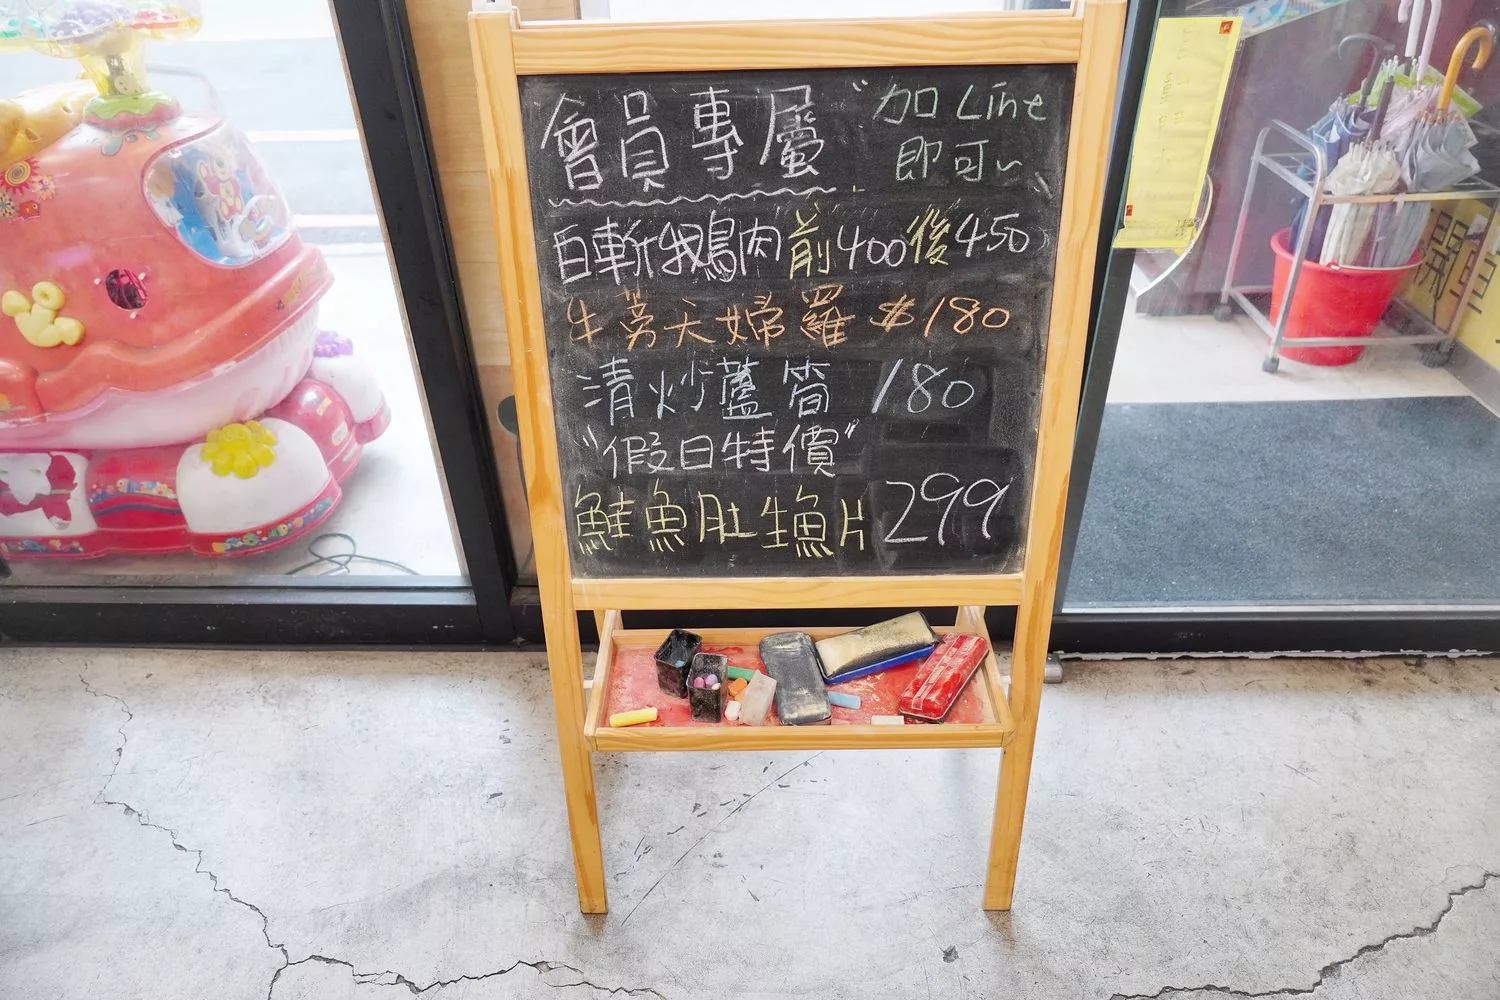 會員專屬 "加 Line
即可~"
白斬鵝肉前400後450
牛蒡天婦羅 $180
清炒蘆筍 180
"假日特價"
鮭魚肚生魚片 299